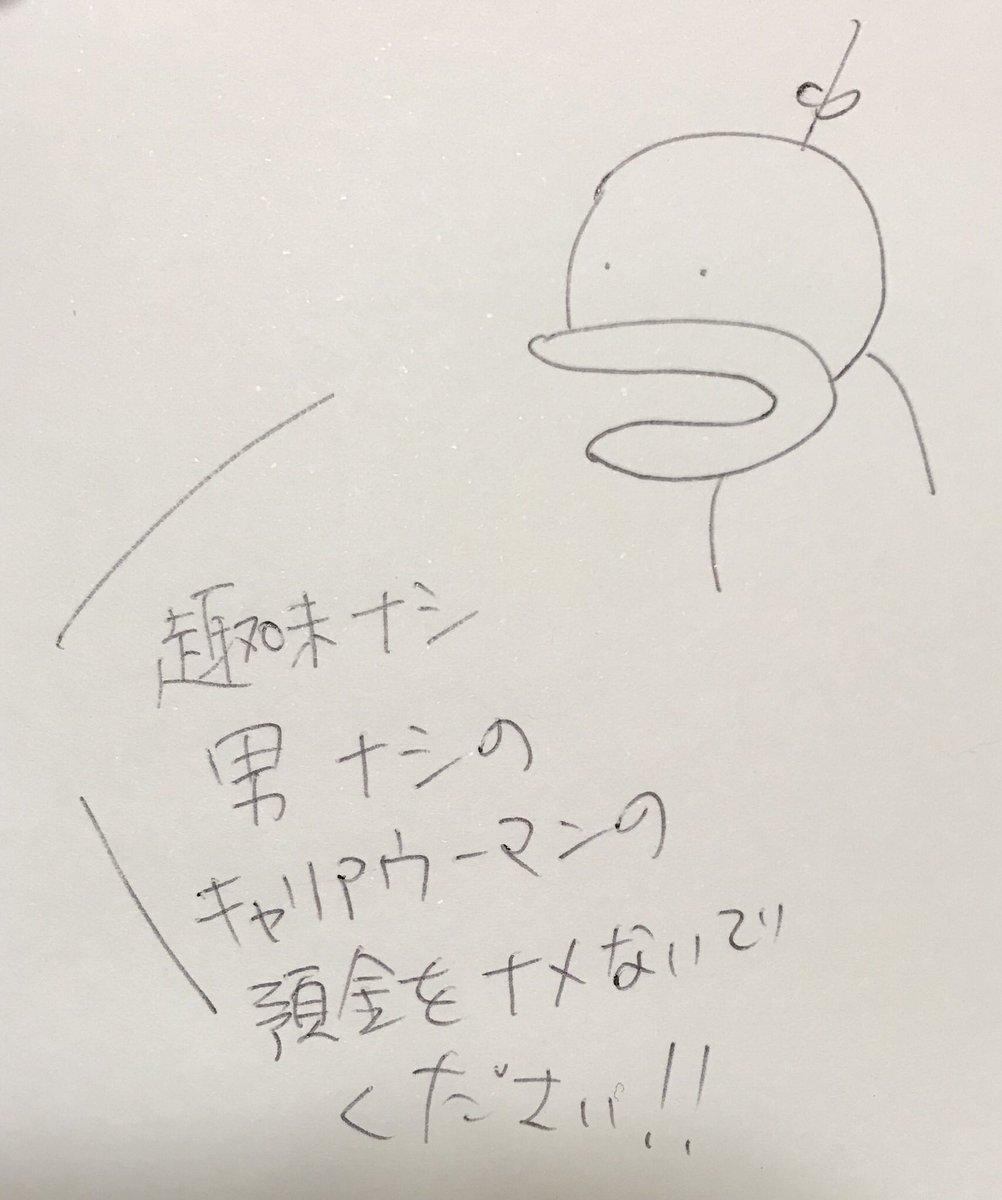 趣味ナシ
男ナシの
キャリアウーマンの
預金をナメないで
ください!!